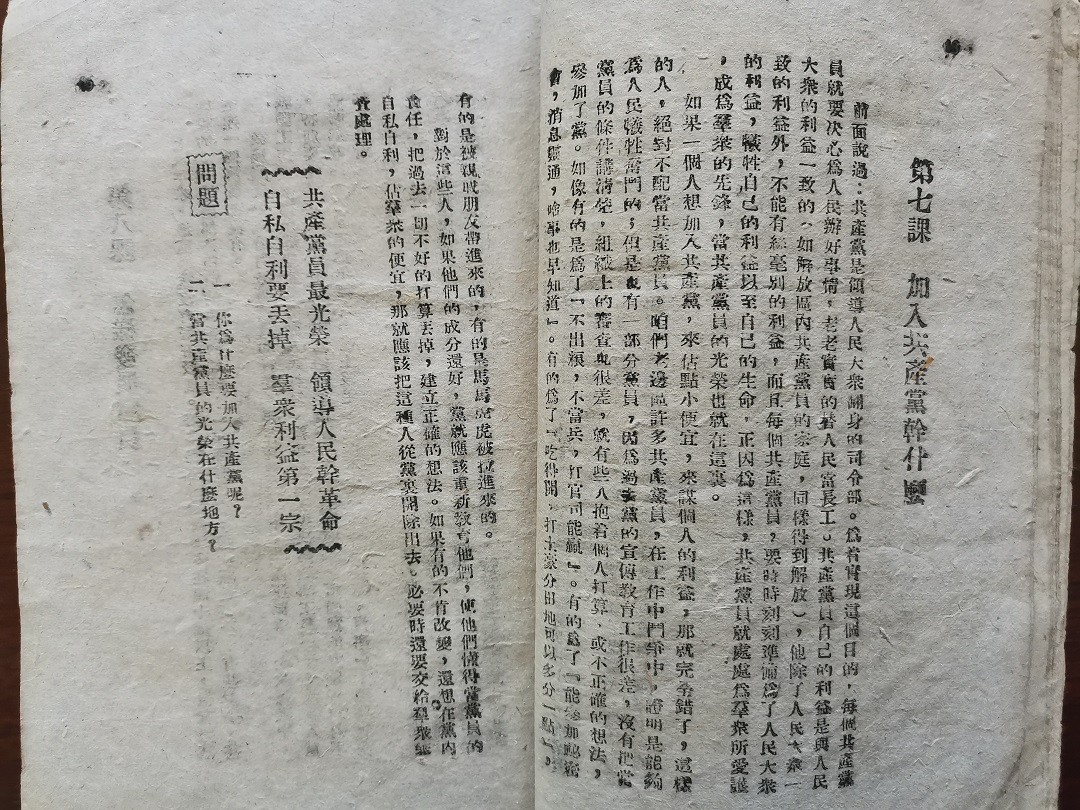 第七課　加入共產黨幹什麼
前面說過：共產黨是領導人民大衆翻身的司令部。爲着實現這個目的，每個共產黨
員就要決心爲人民辦好事情，老老實實的替人民當長工。共產黨員自己的利益是與人民
大衆的利益一致的（如解放區內共產黨員的家庭，同樣得到解放），他除了人民大衆一
致的利益外，不能有絲毫別的利益，而且每個共產黨員，要時時刻刻準備爲了人民大衆
的利益，犧牲自己的利益以至自己的生命，正因爲這樣，共產黨員就處處爲羣衆所愛護
，成爲羣衆的先鋒，當共產黨員的光榮也就在這裏。
如果一個人想加入共產黨，來佔點小便宜，來謀個人的利益，那就完全錯了，這樣
的人，絕對不配當共產黨員。咱們邊區許多共產黨員，在工作中鬥爭中，證明是能夠
爲人民犧牲奮鬥的；但是也有一部分黨員，因爲過去黨的宣傳教育工作很差，沒有把當
黨員的條件講清楚，組織上的審查也很差，就有些人抱着個人打算，或不正確的想法，
參加了黨。如像有的是爲了『不出糧，不當兵，打官司能贏』。有的爲了『能參加秘密
會，消息靈通，啥事也早知道』。有的爲了『吃得開，打土豪分田地可以多分一點』，
有的是被親戚朋友帶進來的，有的是馬馬虎虎被拉進來的。
對於這些人，如果他們的成分還好，黨就應該重新教育他們，使他們懂得當黨員的
責任，把過去一切不好的打算丟掉，建立正確的想法。如果有的不肯改變，還想在黨內
自私自利，佔羣衆的便宜，那就應該把這種人從黨裏開除出去。必要時還要交給羣衆
查處理。
共產黨員最光榮　領導人民幹革命
自私自利要丟掉　羣衆利益第一宗
問題
一　你爲什麼要加入共產黨呢？
二　當共產黨員的光榮在什麼地方？